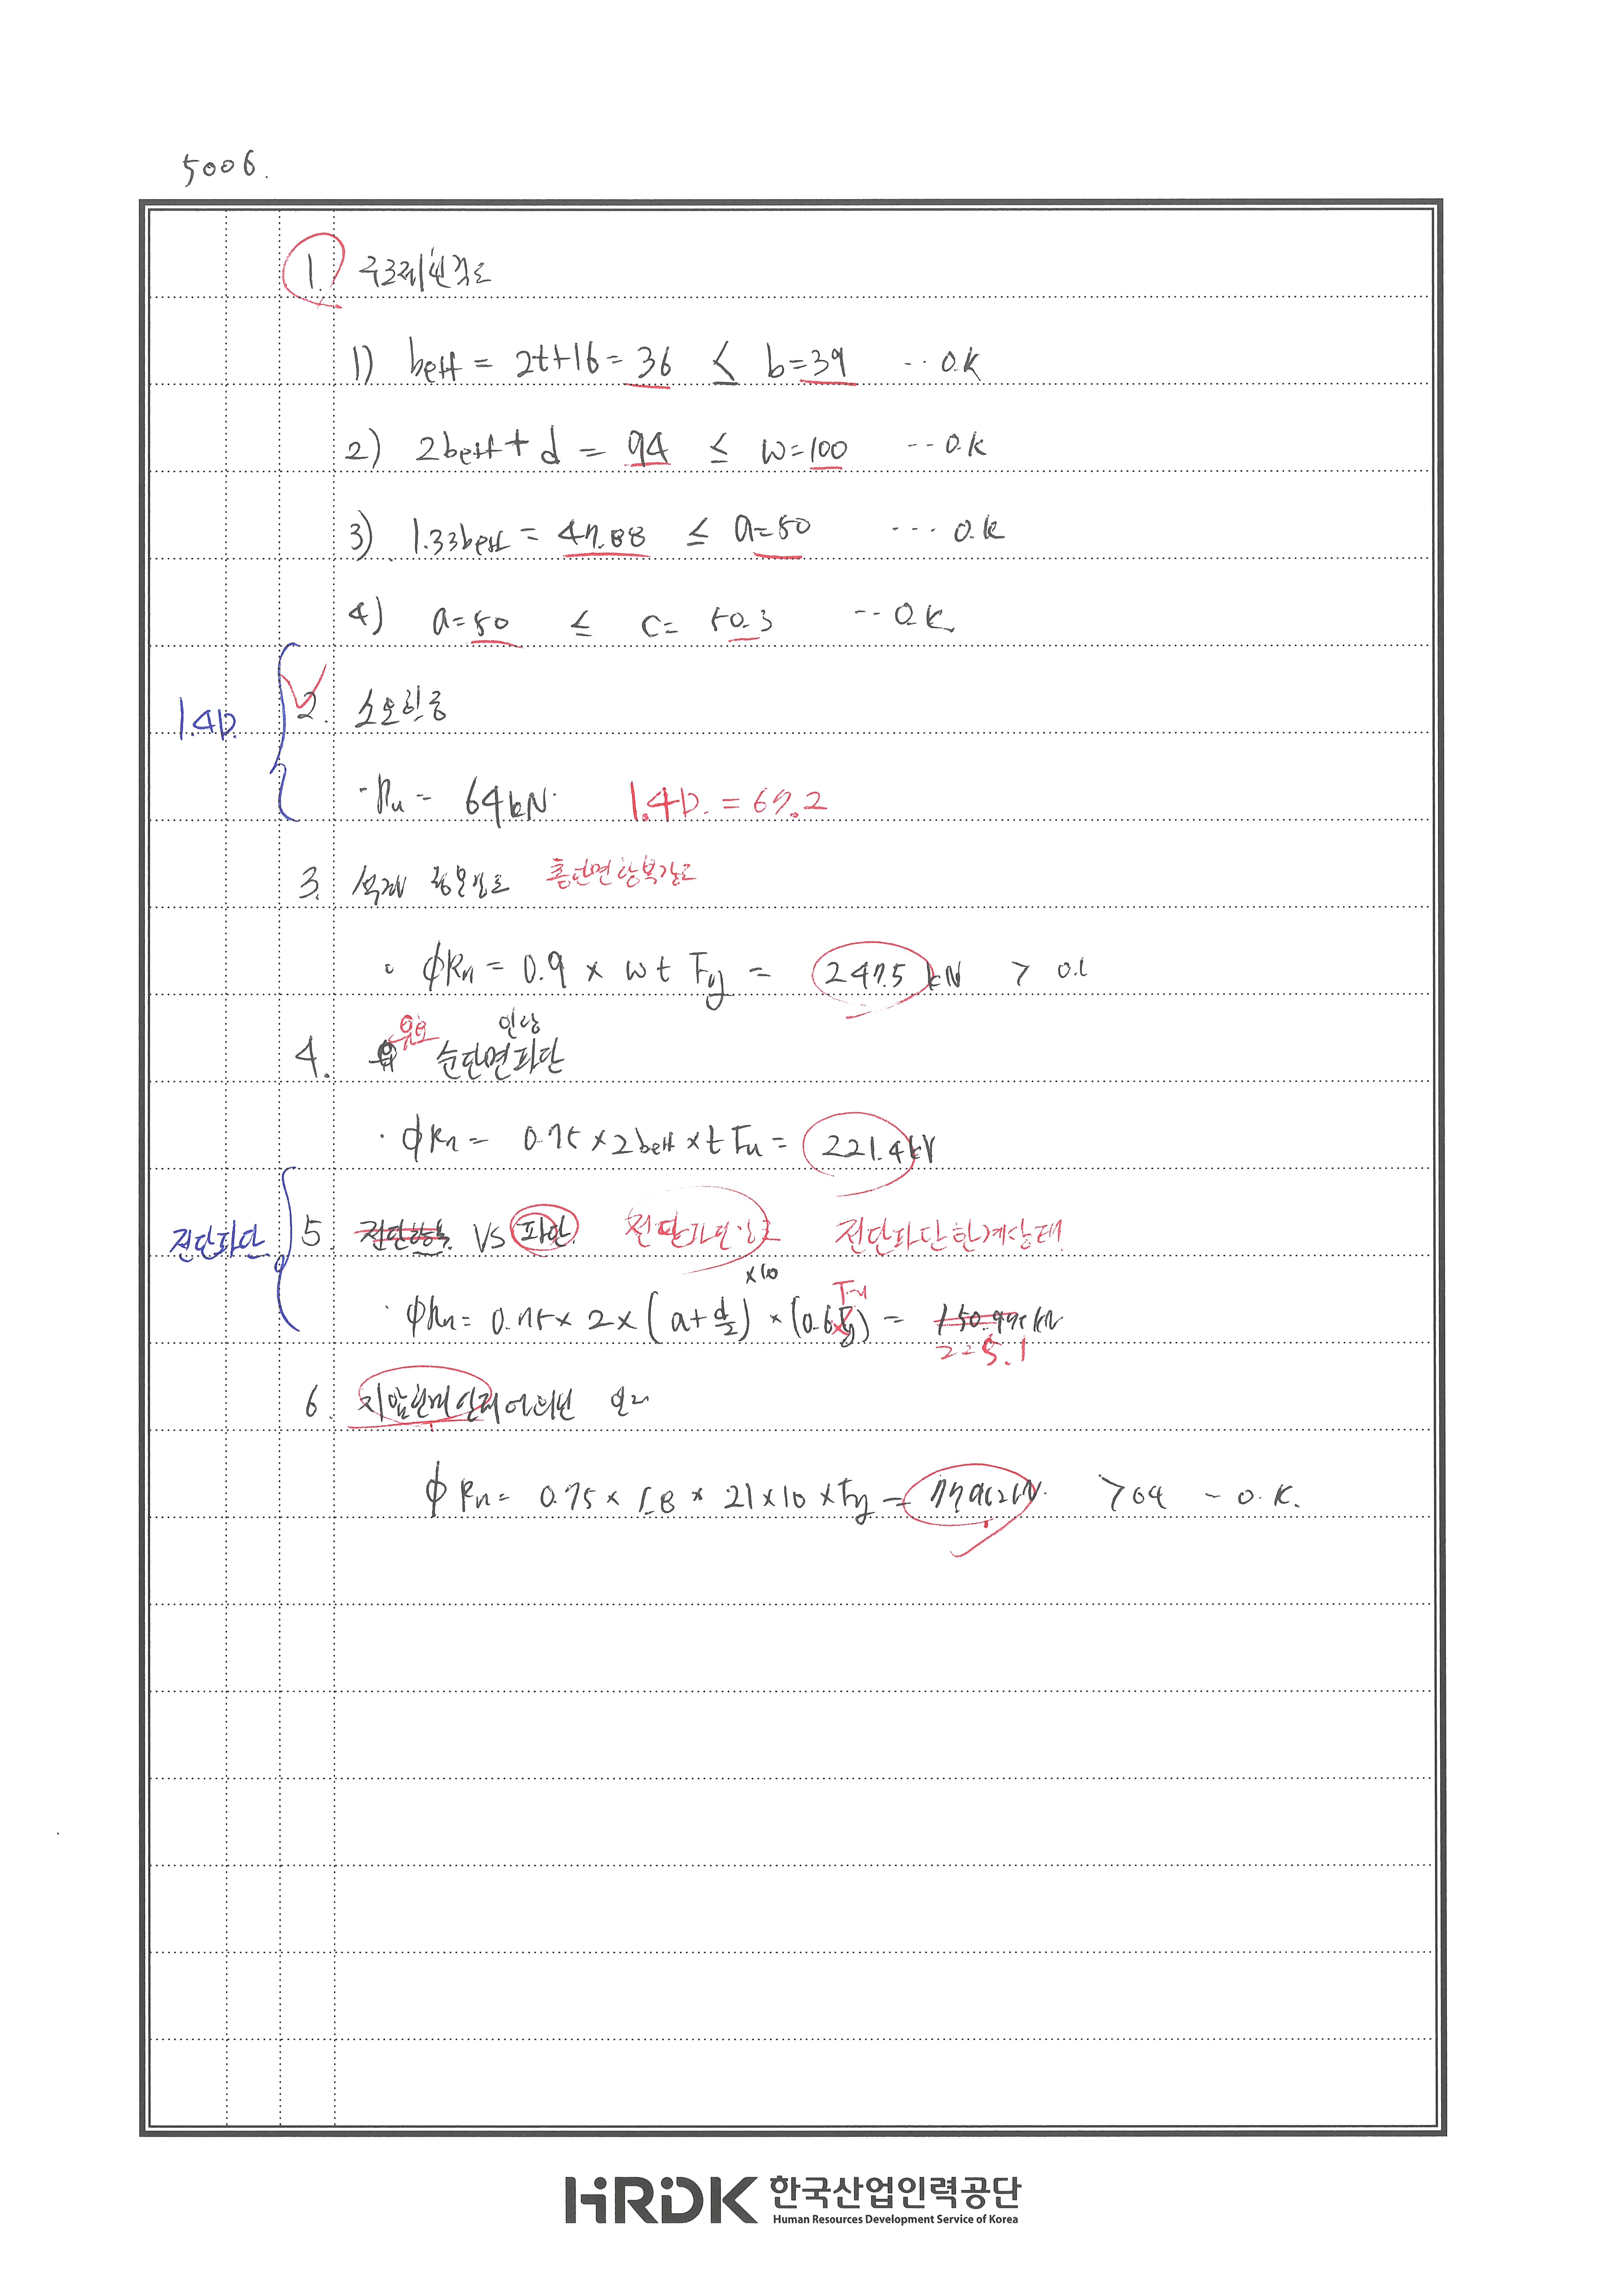 5006.
1. 구조제한검토
1) beff = 2t+16 = 36 ≤ b=39 ... O.K
2) 2beff + d = 94 ≤ w=100 --- O.K
3) 1.33beff = 47.88 ≤ a=50 ... O.K
4) a=50 ≤ c= 50.3 -- O.K.
1.4D. 2. 소요하중
- Pu = 64kN. 1.4D. = 67.2
3. 총단면항복강도
• ΦRn = 0.9 × wt Fy = 247.5 kN > O.K
4. 유효 인장 순단면파단
· ΦRn = 0.75 × 2beff × t Fu = 221.4kN
전단파단 5. 전단항복 VS 파단. 전단파단강도 전단파단한계상태
×10
· ΦRn = 0.75 × 2 × (a + d/2) × (0.6Fy) = 150.975 kN
Fu
225.1
6.
Φ Rn = 0.75 × 1.8 × 21 × 10 × Fy = 77.962kN. > 64 - O.K.
HRDK 한국산업인력공단
Human Resources Development Service of Korea